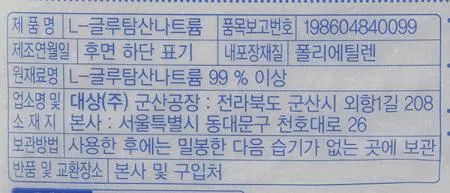 제 품 명 L-글루탐산나트륨 품목보고번호 198604840099
제조연월일 후면 하단 표기 내포장재질 폴리에틸렌
원재료명 L-글루탐산나트륨 99 % 이상
업소명 및 대상(주) 군산공장 : 전라북도 군산시 외항1길 208
소 재 지 본사 : 서울특별시 동대문구 천호대로 26
보관방법 사용한 후에는 밀봉한 다음 습기가 없는 곳에 보관
반품 및 교환장소 본사 및 구입처